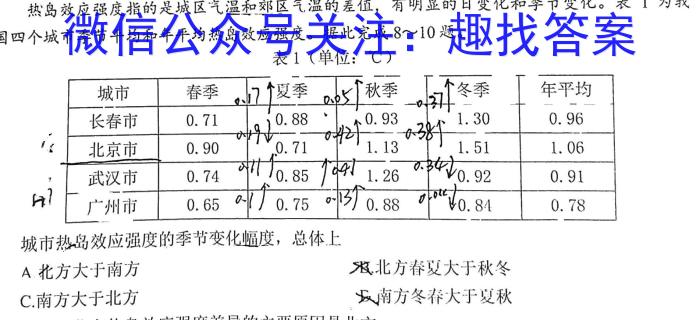 热岛效应强度指的是城区气温和郊区气温的差值，有明显的日变化和季节变化。表1为我
国四个城市季节平均和年平均热岛效应强度。据此完成8～10题。
微信公众号关注：趣找答案
表1（单位：℃）
城市 春季 夏季 秋季 冬季 年平均
0.17↑ 0.05↑ 0.37↑
长春市 0.71 0.88 0.93 1.30 0.96
0.19↓ 0.42↑ 0.38↑
北京市 0.90 0.71 1.13 1.51 1.06
0.11↑ 0.41↑ 0.34↓
武汉市 0.74 0.85 1.26 0.92 0.91
0.1↑ 0.13↑ 0.04↓
广州市 0.65 0.75 0.88 0.84 0.78
城市热岛效应强度的季节变化幅度，总体上
A 北方大于南方
B.北方春夏大于秋冬
C.南方大于北方
D.南方冬春大于夏秋